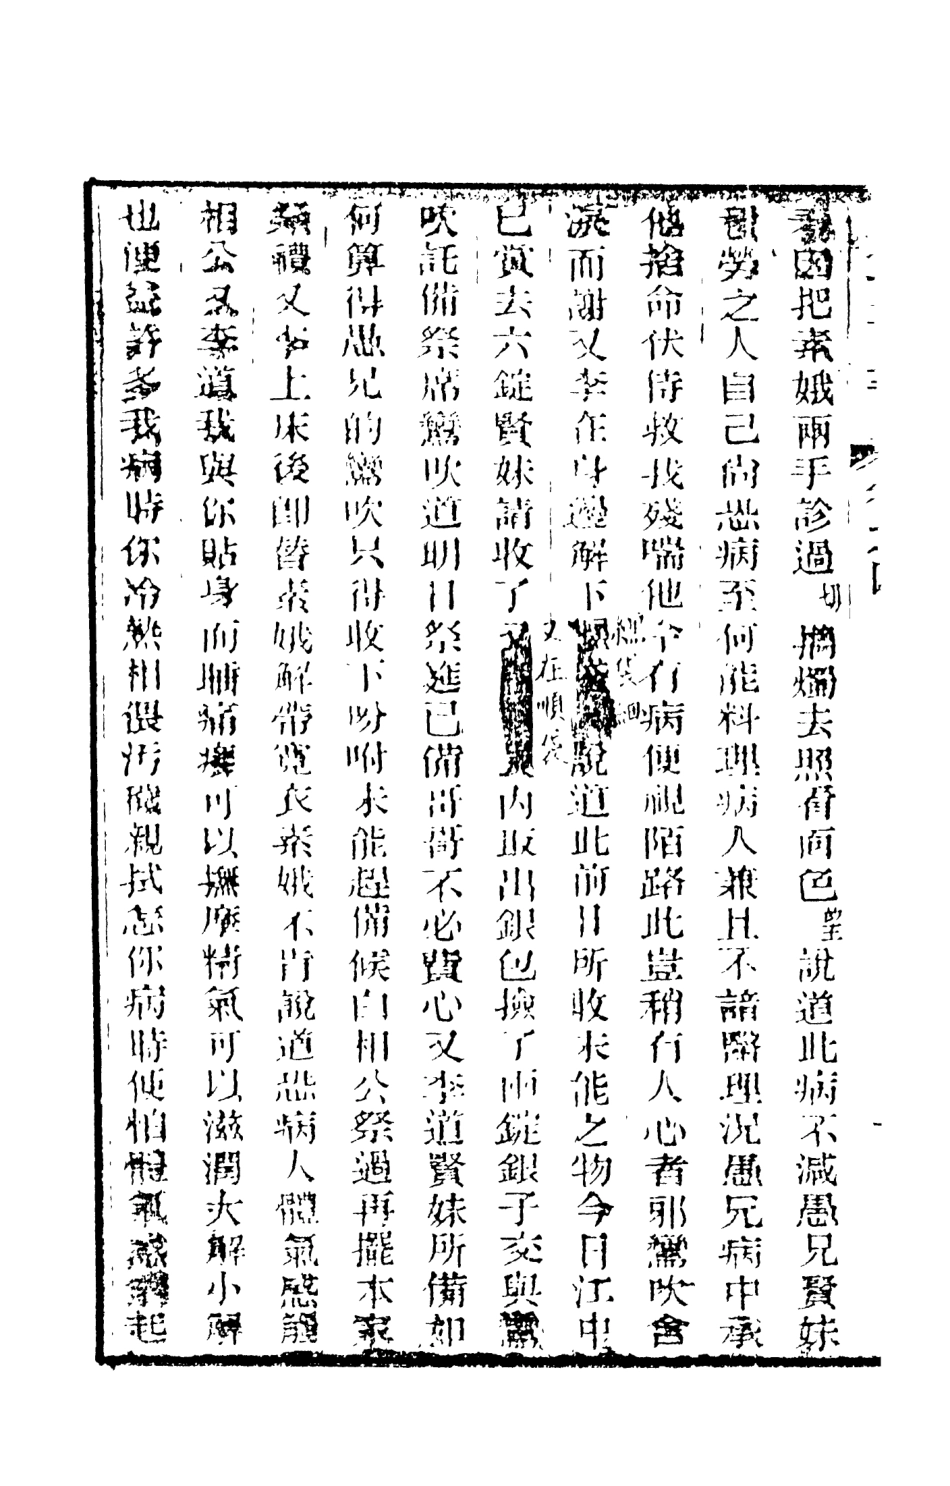 因把素娥兩手診過切攜燭去照看面色望說道此病不減愚兄賢妹
勞之人自己尙恐病至何能料理病人兼且不諳醫理況愚兄病中承
他捨命伏侍救我殘喘他今有病便視陌路此豈稍有人心者邪鸞吹含
淚而謝又李在身邊解下說道此前日所收未能之物今日江中
已賞去六錠賢妹請收了又在順袋內取出銀包撿了兩錠銀子交與鸞
吹託備祭席鸞吹道明日祭筵已備哥哥不必費心又李道賢妹所備如
何算得愚兄的鸞吹只得收下吩咐未能趕備候白相公祭過再擺本家
祭禮又李上床後卽替素娥解帶寬衣素娥不肯說道恐病人體氣惑觸
相公又李道我與你貼身而睡痛癢可以撫摩精氣可以滋潤大解小解
也便益許多我病時你冷熱相偎汚穢親拭怎你病時便怕體氣惑觸起